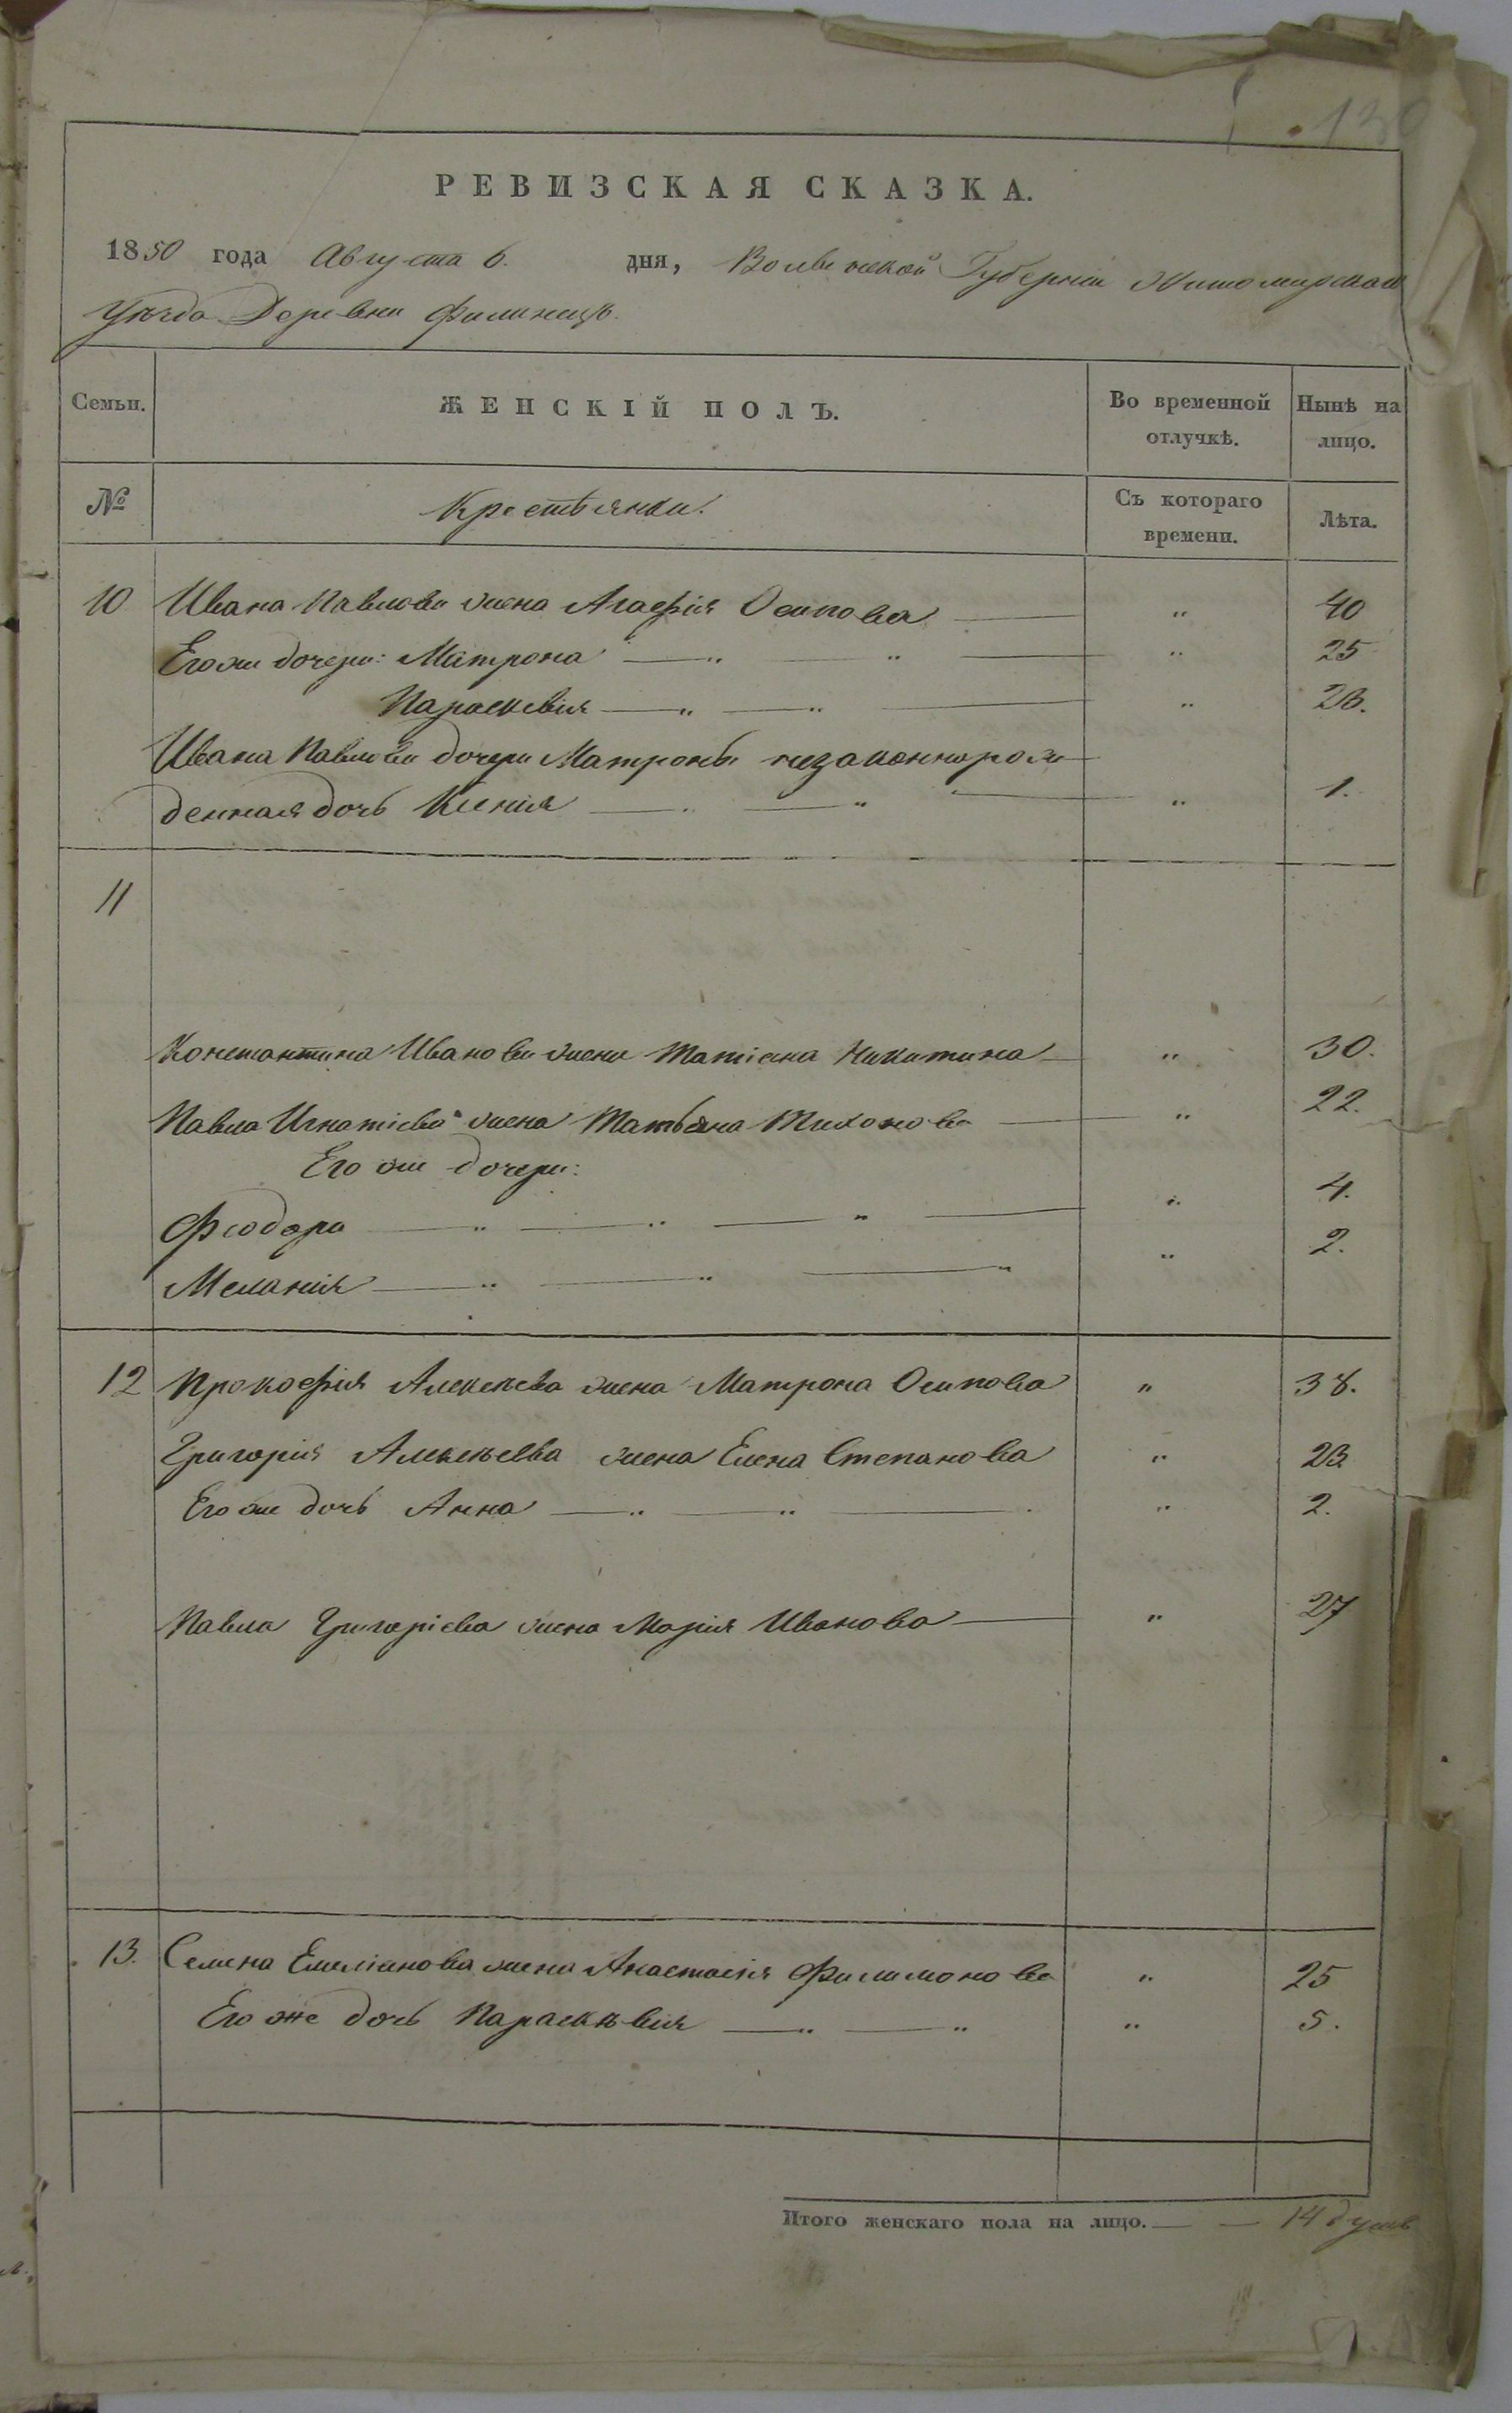 130
РЕВИЗСКАЯ СКАЗКА.
1850 года Августа 6. дня, Волынской Губерніи Житомирскаго
Уѣзда Деревни Филинецъ.
Семьи. ЖЕНСКІЙ ПОЛЪ. Во временной отлучкѣ. Нынѣ на лицо.
№ Крестьянки. Съ котораго времени. Лѣта.
10 Ивана Павлова жена Агафія Осипова — " 40
Его же дочери: Матрона — " — " — " 25
Параскевія — " — " — " 23.
Ивана Павлова дочери Матроны незаконнорож
денная дочь Ксенія — " — " — " 1.
11
Константина Иванова жена Татіана Никитина — " 30.
Павла Игнатіева жена Татьяна Тихонова — " 22.
Его же дочери:
Феодора — " — " — " — " 4.
Меланія — " — " — " " 2.
12 Прокофія Алексѣева жена Матрона Осипова " 38.
Григорія Алексѣева жена Елена Степанова " 23
Его же дочь Анна — " — " — " 2.
Павла Григоріева жена Марія Иванова — " 27
13. Семена Емеліанова жена Анастасія Филимонова " 25
Его же дочь Параскѣвія — " — " " 5.
Итого женскаго пола на лицо. — — 14 душъ